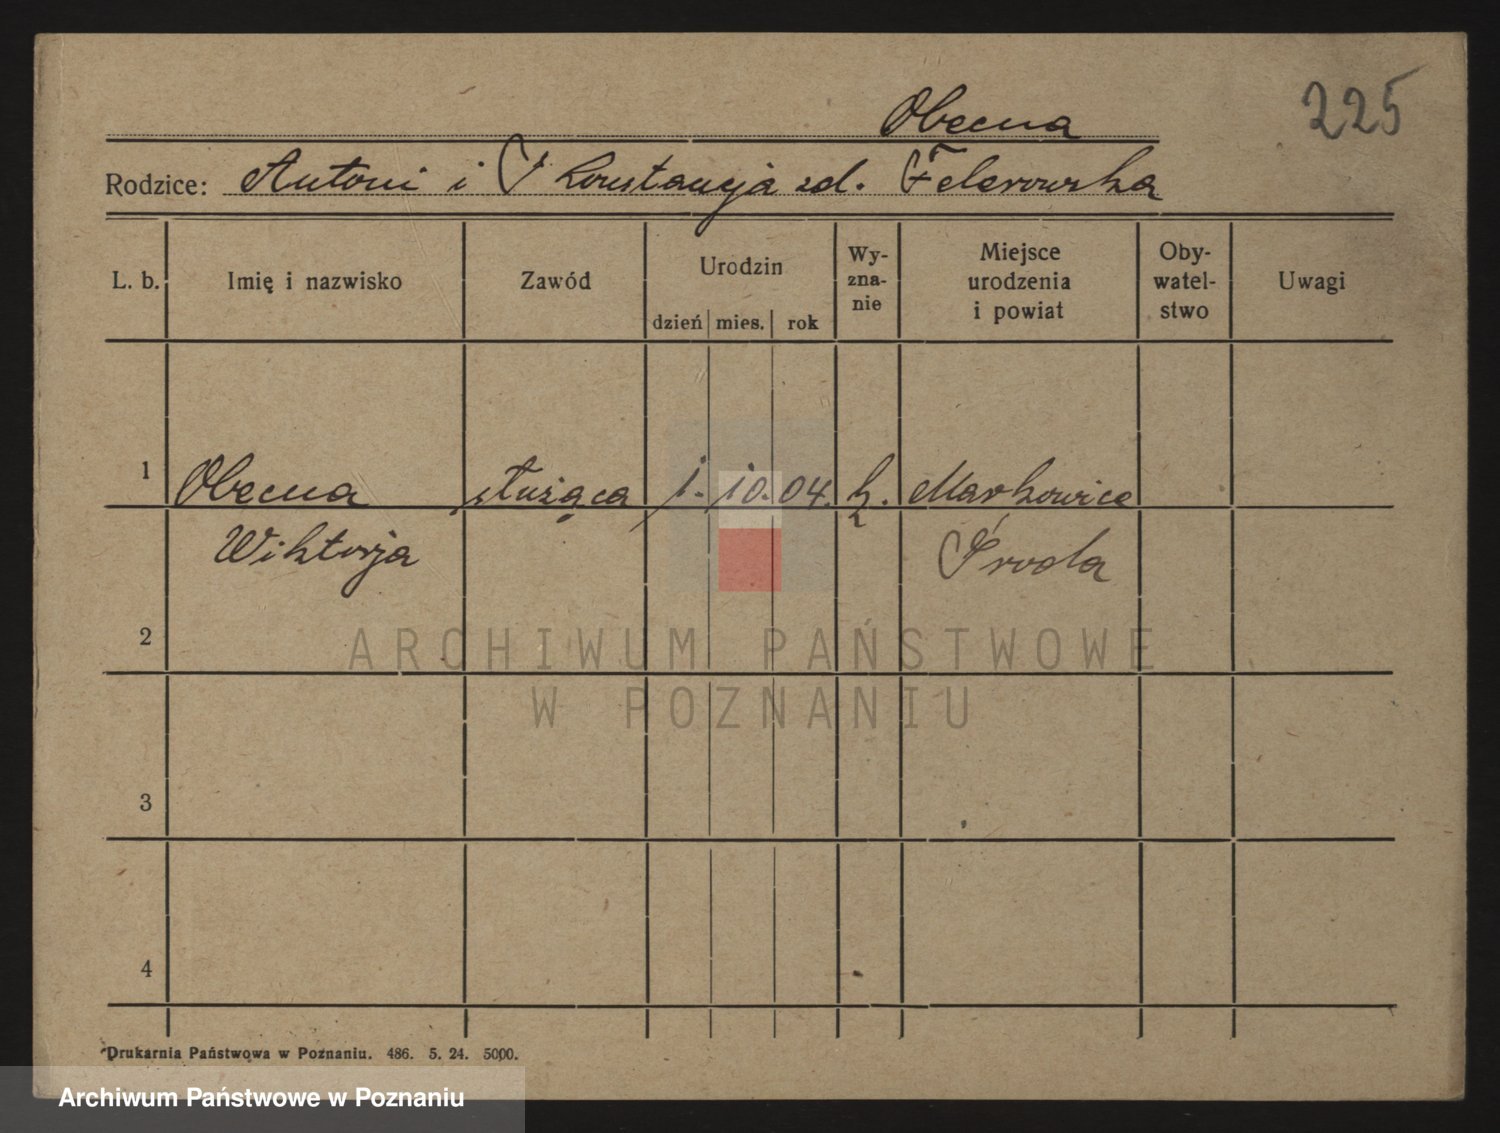 225
Obecna
Rodzice: Antoni i Konstancja zd. Felerowska
L. b. Imię i nazwisko Zawód Urodzin dzień mies. rok Wy-zna-nie Miejsce urodzenia i powiat Oby-watel-stwo Uwagi
1 Obecna służąca 1. 10. 04. k. Markowice
Wiktorja Środa
2
ARCHIWUM PAŃSTWOWE
W POZNANIU
3
4
Drukarnia Państwowa w Poznaniu. 486. 5. 24. 5000.
Archiwum Państwowe w Poznaniu